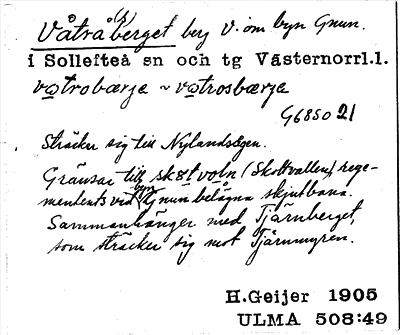 Våtrå(s)berget berg V. om byn Gnun.
i Sollefteå sn och tg Västernorrl.l.
vɷtrobærje ~ vɷtrosbærje
G6850 21
Sträcker sig till Nylandsvägen.
Gränsar till skɷtvɷln (Skottvallen), rege-
mentets vid byn Gnun belägna skjutbana.
Sammanhänger med Tjärnberget,
som sträcker sig mot Tjärnmyren.
H.Geijer 1905
ULMA 508:49